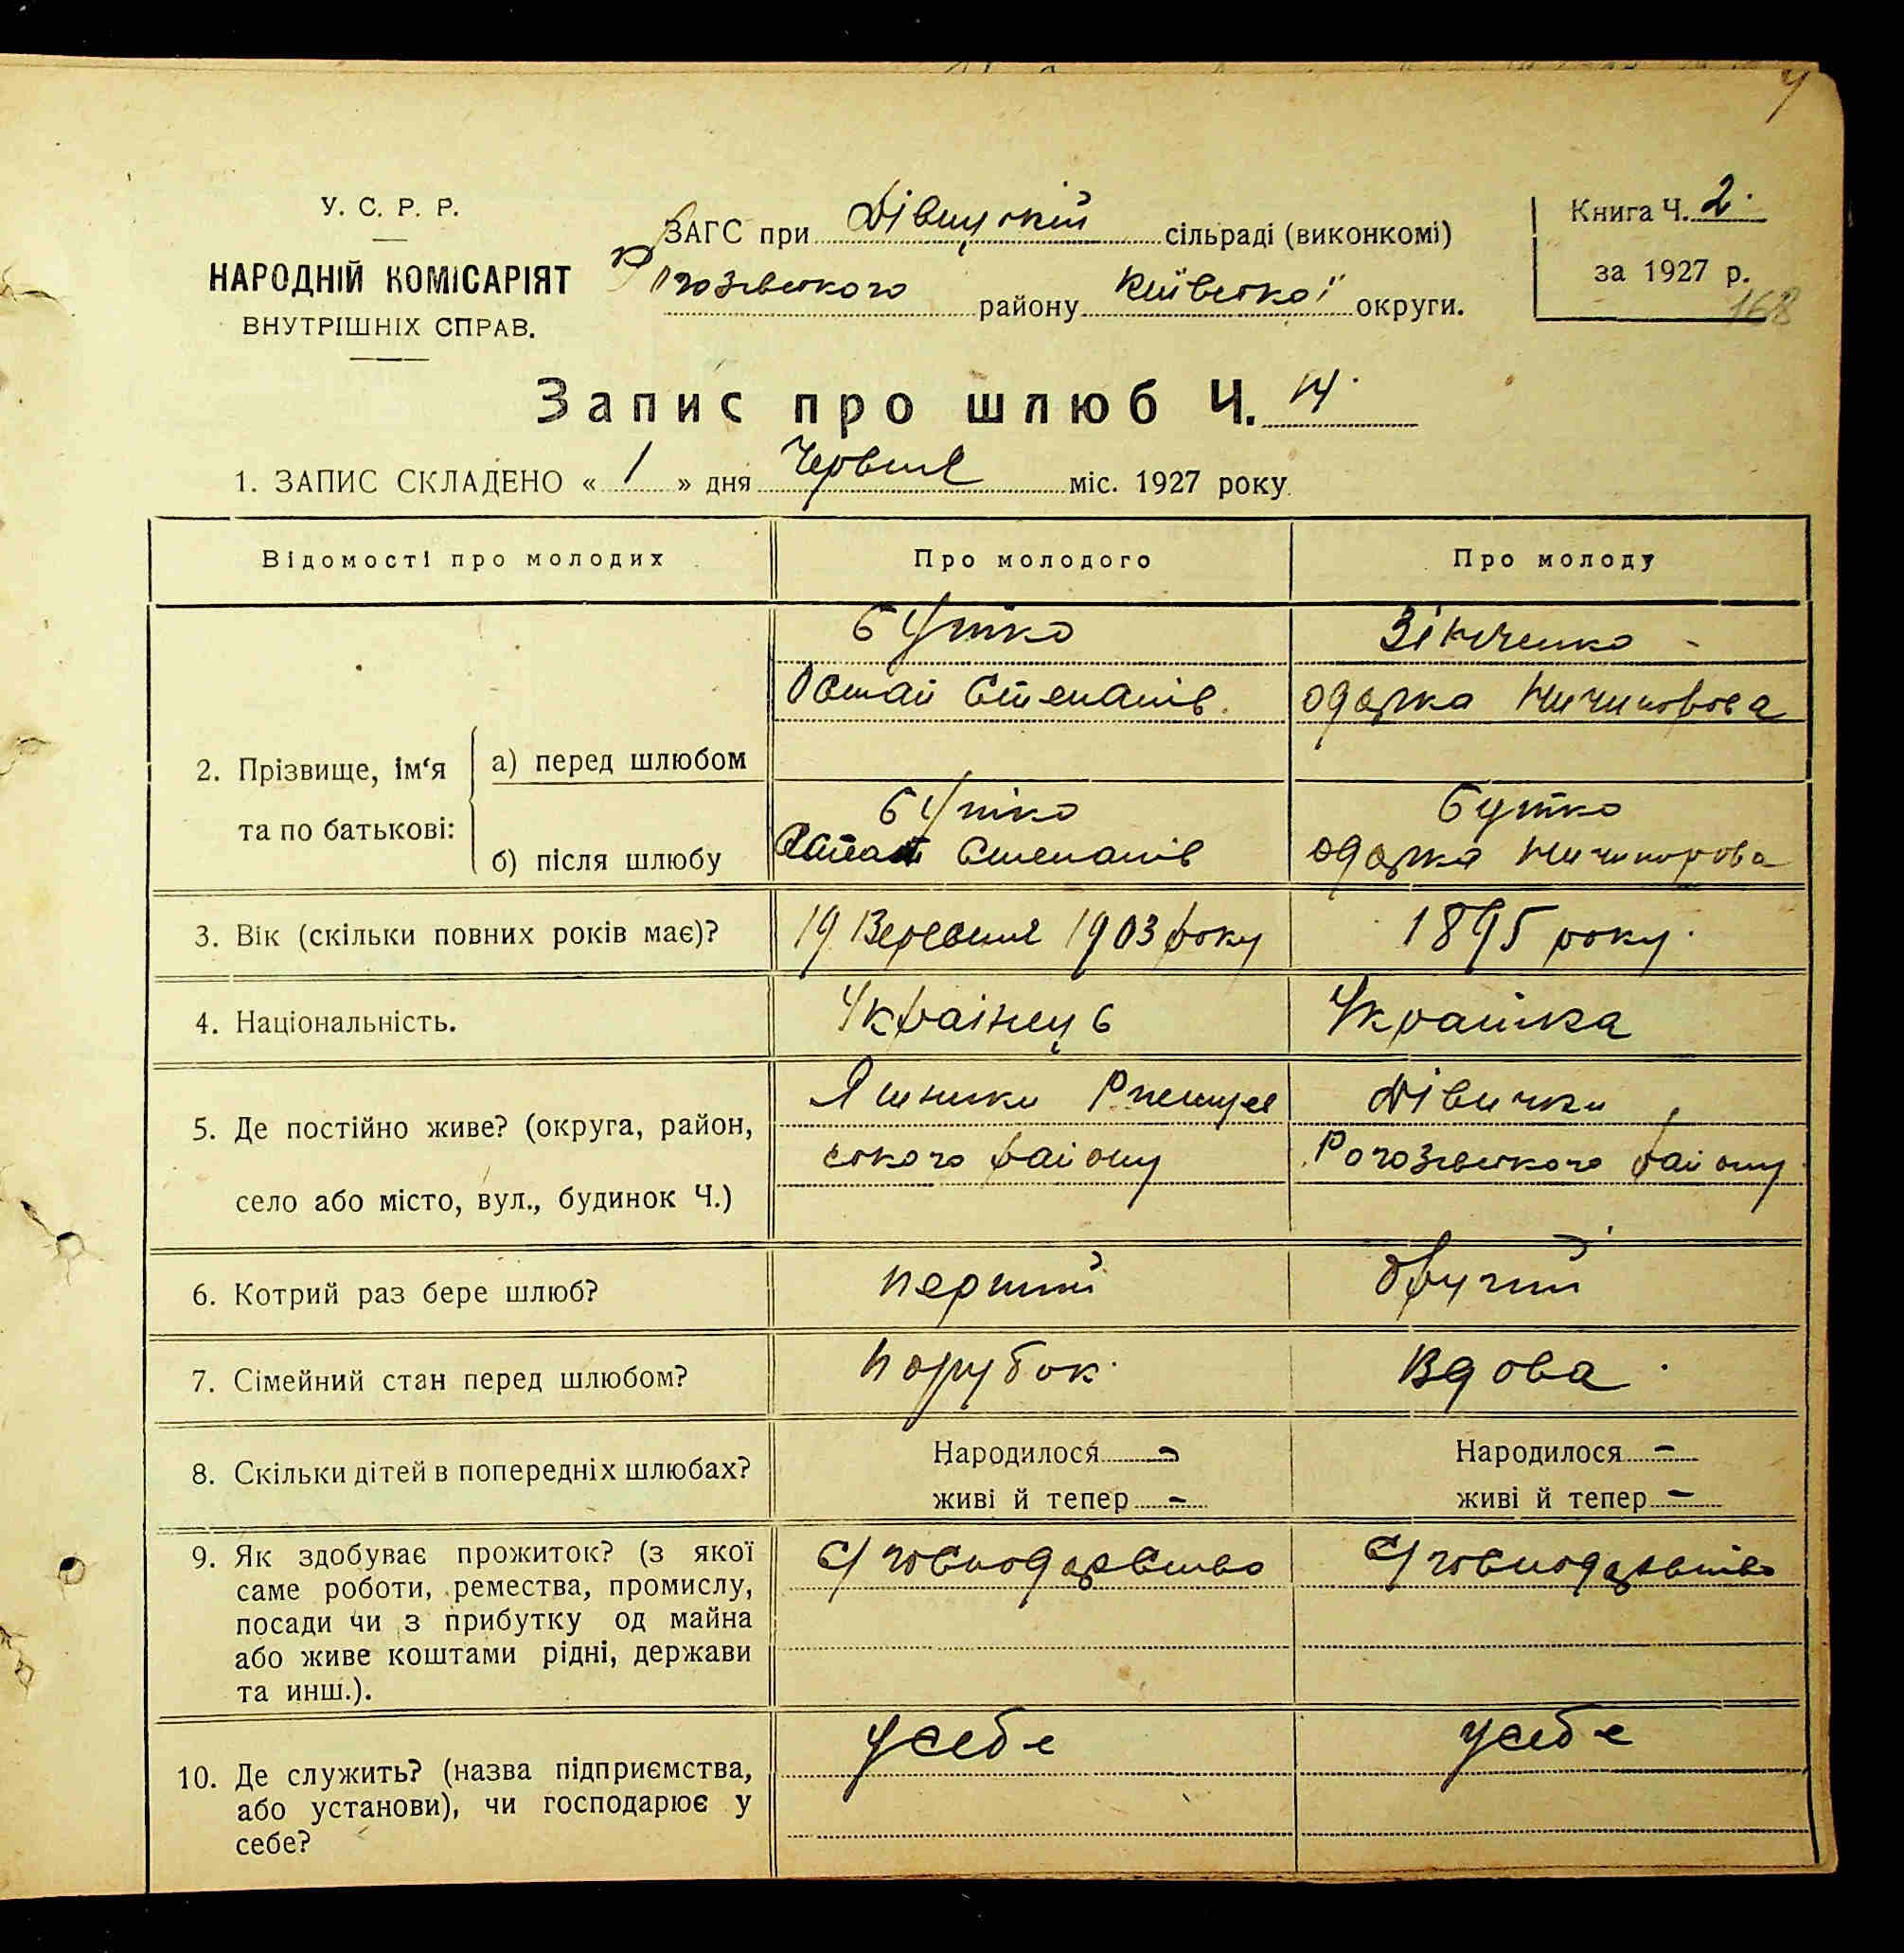 У. С. Р. Р.
НАРОДНІЙ КОМІСАРІЯТ
ВНУТРІШНІХ СПРАВ.
ЗАГС при Дівицькій сільраді (виконкомі)
Рогозівського району Київської округи.
Книга Ч. 2.
за 1927 р.
168
Запис про шлюб Ч. 14.
1. ЗАПИС СКЛАДЕНО « 1 » дня Червня міс. 1927 року
Відомості про молодих Про молодого Про молоду
2. Прізвище, ім‘я та по батькові:
а) перед шлюбом
Бутко
Остап Степанів.
Зінченко
Одарка Ничипорова
б) після шлюбу
Бутко
Остап Степанів
Бутко
Одарка Ничипорова
3. Вік (скільки повних років має)? 19 Вересня 1903 року 1895 року.
4. Національність. Українець Українка
5. Де постійно живе? (округа, район,
село або місто, вул., будинок Ч.)
Яшники Ржищев
ського району
Дівички,
Рогозівського району
6. Котрий раз бере шлюб? перший другий
7. Сімейний стан перед шлюбом? парубок. Вдова.
8. Скільки дітей в попередніх шлюбах?
Народилося -
живі й тепер -
Народилося -
живі й тепер -
9. Як здобуває прожиток? (з якої
саме роботи, ремества, промислу,
посади чи з прибутку од майна
або живе коштами рідні, держави
та инш.).
С/господарство
С/господарство
10. Де служить? (назва підприємства,
або установи), чи господарює у
себе?
у себе
у себе